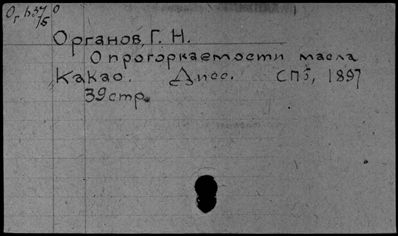 Органов, Г. Н.
О прогоркаемости масла
Какао. Дисс. СПб, 1897
39 стр.